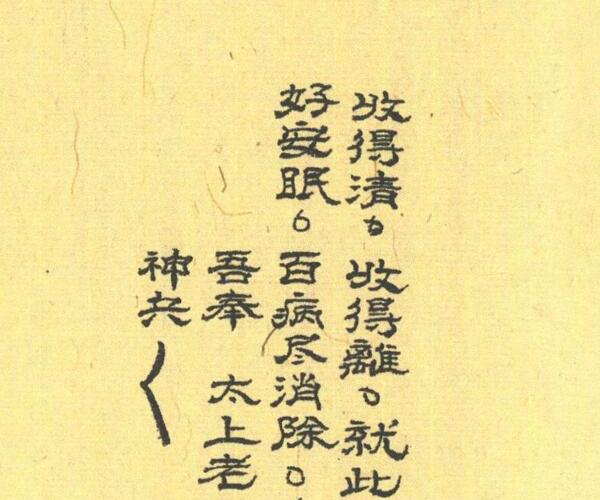 收得清。收得離。就此
好安眠。百病尽消除。
吾奉 太上老
神兵